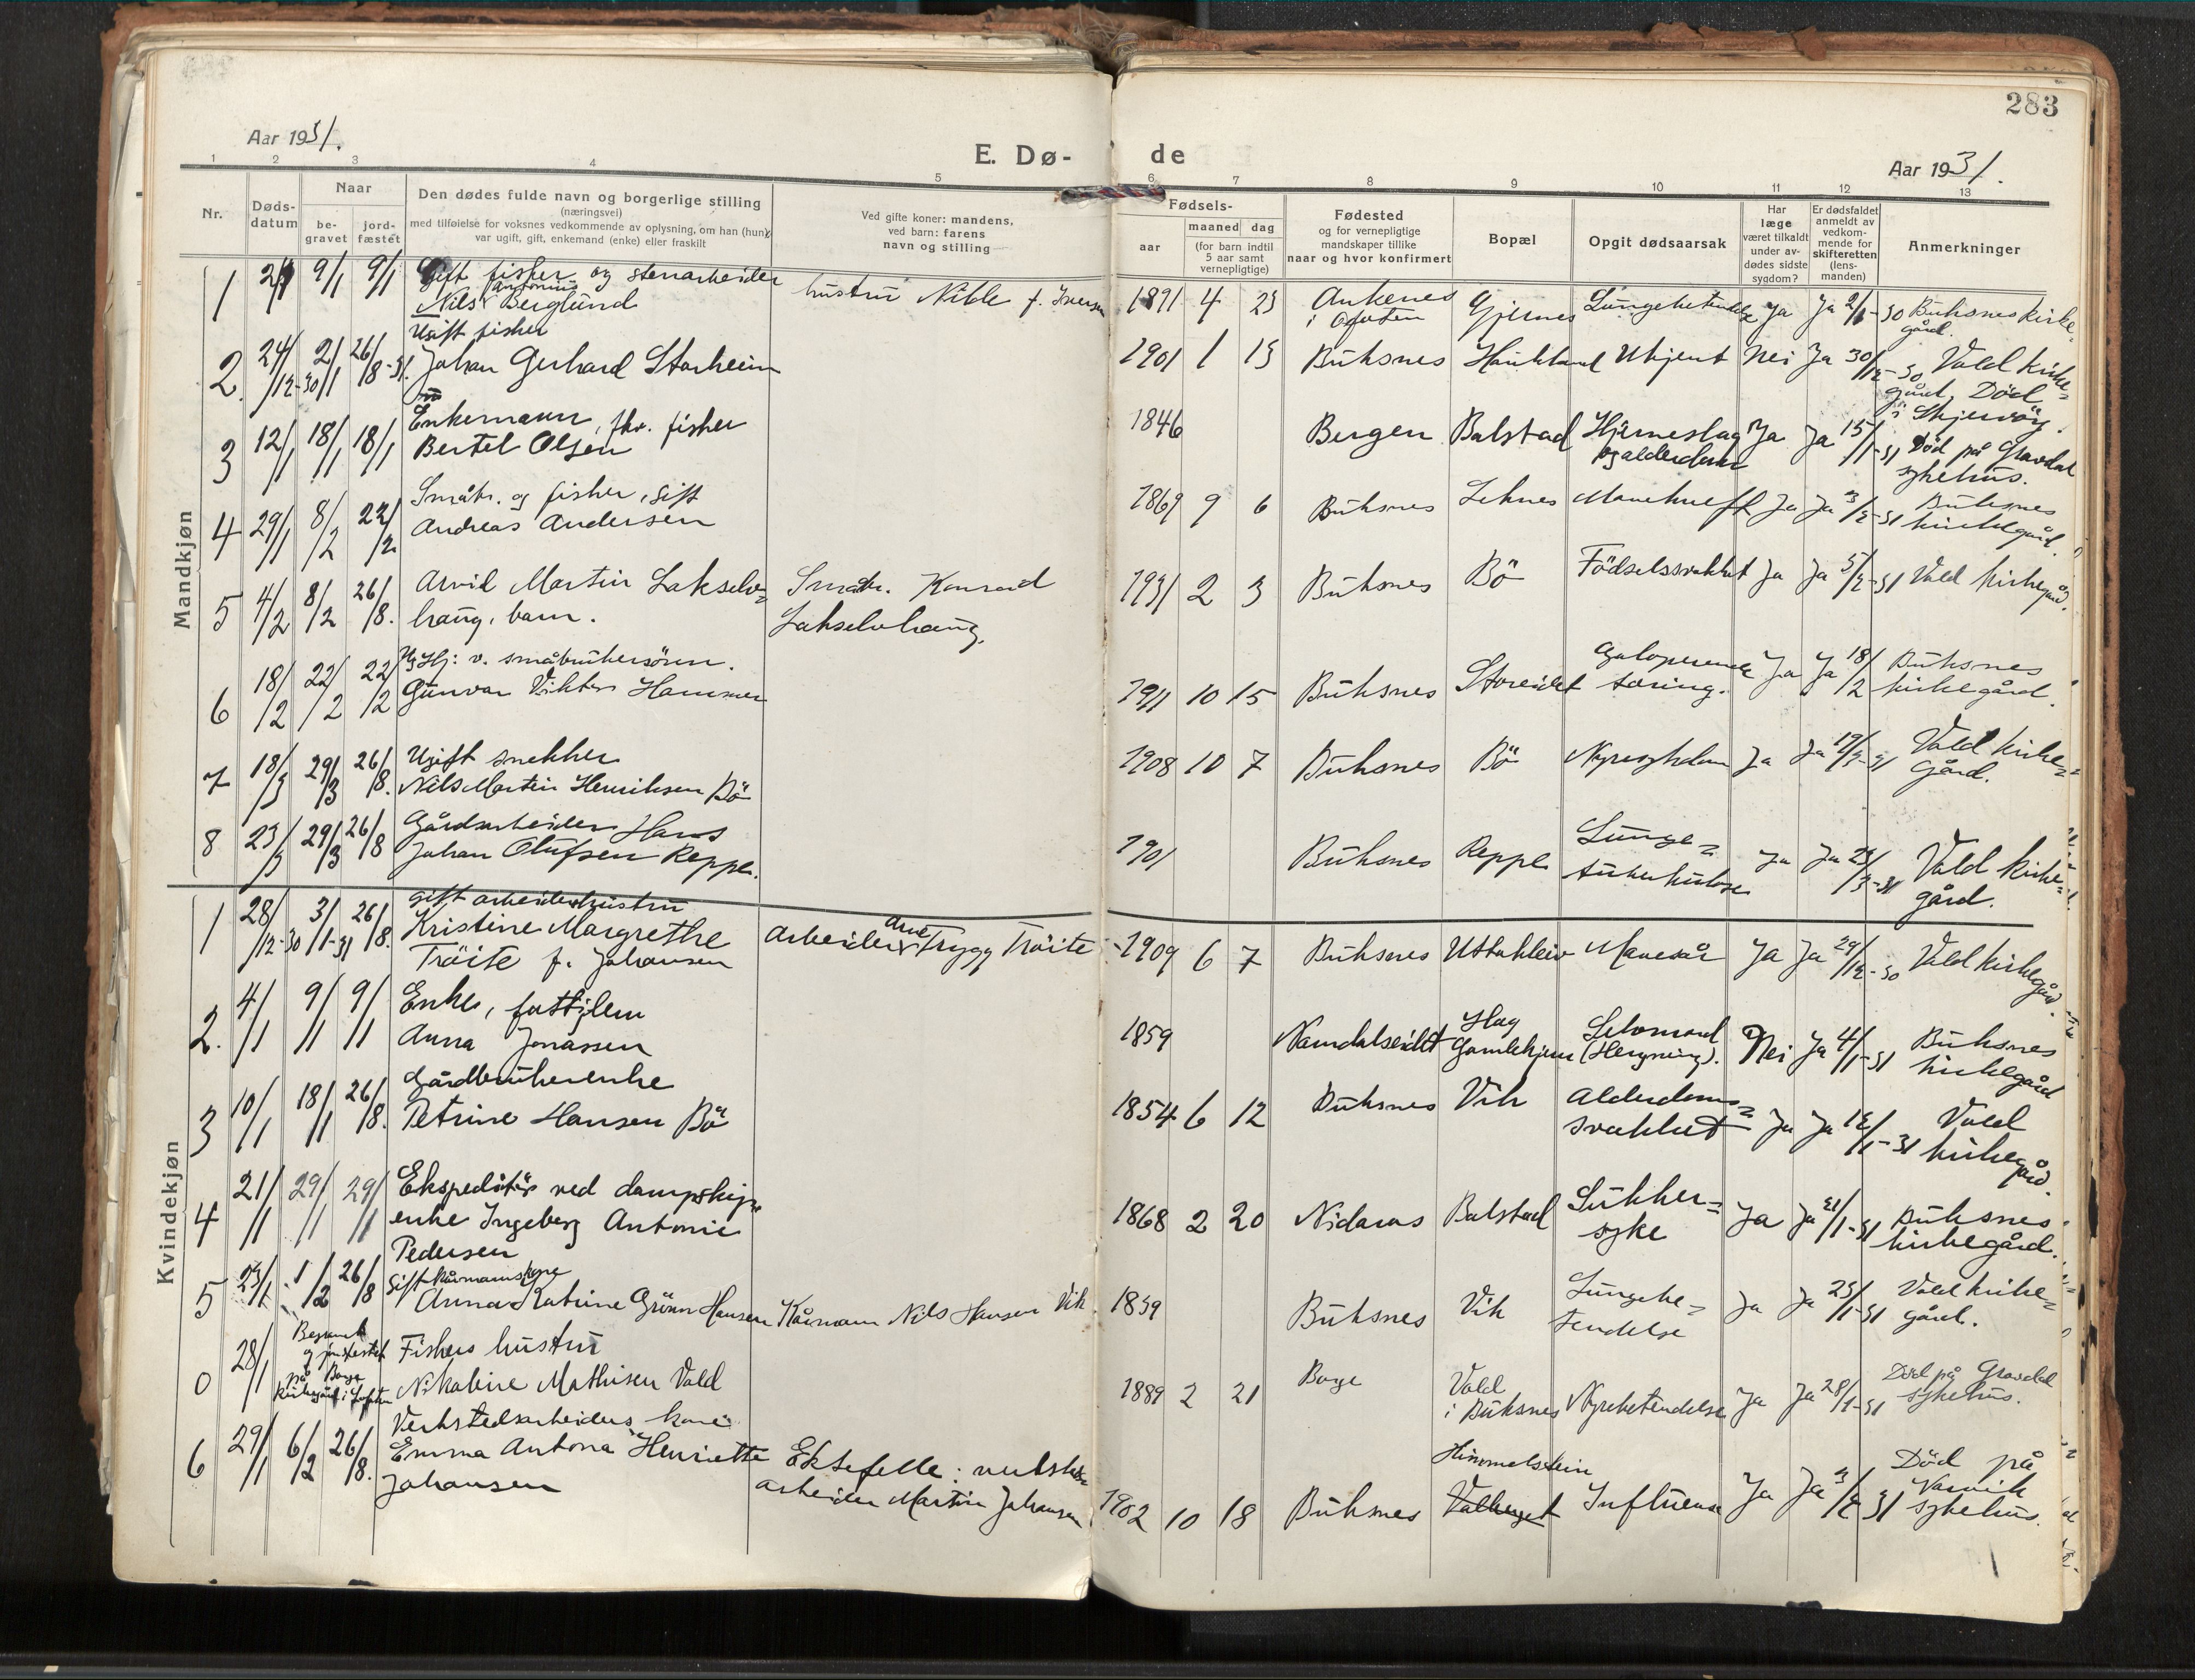 283
Aar 1931.
E. Dø-
de
Aar 1931.
1 2 3 4 5 6 7 8 9 10 11 12 13
Nr.
Døds-
datum
Naar
be-
gravet
jord-
fæstet
Den dødes fulde navn og borgerlige stilling
(næringsvei)
med tilføielse for voksnes vedkommende av oplysning, om han (hun)
var ugift, gift, enkemand (enke) eller fraskilt
Ved gifte koner: mandens,
ved barn: farens
navn og stilling
Fødsels-
aar
maaned dag
(for barn indtil
5 aar samt
vernepligtige)
Fødested
og for vernepligtige
mandskaper tillike
naar og hvor konfirmert
Bopæl
Opgit dødsaarsak
Har
læge
været tilkaldt
under av-
dødes sidste
sygdom?
Er dødsfaldet
anmeldt av
vedkom-
mende for
skifteretten
(lens-
manden)
Anmerkninger
Mandkjøn
1 9/1 9/1 Gift fisker og stenarbeider
Nils Antonius Berglund
hustru f. Iversen
1891 4 23 Ankenes
i Ofoten
Lungebetendelse Ja Ja 2/1-30 Buksnes kirke-
gård.
2. 24/12-30 2/1 26/8-31. Ugift fisker
Johan Gerhard Storheim
1901 1 13 Buksnes Haukland Ukjent Nei Ja 30/12-30 Vold kirke-
gård, Død
i Skjervøy.
3 12/1 18/1 18/1 Enkemann, fhv. fisker
Bertel Olsen
1846 Bergen Balstad Hjerneslag
og alderdom Ja Ja 15/1-31 Död på Gravdal
sykehus.
4 29/1 8/2 22/2 Småbr. og fisker, gift
Andreas Andersen
1869 9 6 Buksnes Leknes Mavekreft Ja Ja 3/2-31 Buksnes
kirkegård.
5 4/2 8/2 26/8. Arvid Martin Lakselv-
haug, barn.
Småbr. Konrad
Lakselvhaug.
1931 2 3 Buksnes Bö Födselssvakhet Ja Ja 5/2-31 Vold kirkegård.
6 18/2 22/2 22/2 Ug. Hj: v. småbrukersönn.
Gunvar Viktor Hammer
1911 10 15 Buksnes Storeidet Galoperende
tæring. Ja Ja 18/2 Buksnes
kirkegård.
7 18/3 29/3 26/8. Ugift snekker
Nils Martin Henriksen Bö
1908 10 7 Buksnes Bö Nyresykdom Ja Ja 19/3-31 Vold kirke-
gård.
8 23/3 29/3 26/8 Gårdsarbeider Hans
Johan Olufsen Reppe.
1901 Buksnes Reppe Lunge-
tuberkulose Ja Ja 24/3-31 Vold kirke-
gård.
Kvindekjøn
1 28/12-30 3/1-31 26/8. gift arbeiderhustru
Kristine Margrethe
Tröite f. Johansen
Arbeider Arne Trygg Tröite
1909 6 7 Buksnes Uttakleiv Mavesår Ja Ja 29/12-30 Vold kirkegård.
2. 4/1 9/1 9/1 Enke, fattiglem
Anna Jonassen
1859 Namdalseidet Hag
Gamlehjem Selvmord
(Hengning). Nei Ja 4/1-31 Buksnes
kirkegård
3 10/1 18/1 26/8. Gårdbrukerenke
Petrine Hansen Bö
1854 6 12 Buksnes Vik Alderdoms-
svakhet Ja Ja 12/1-31 Vold
kirkegård.
4 21/1 29/1 29/1 Ekspeditör ved dampskip,
enke Ingeborg Antonie
Pedersen
1868 2 20 Nidaros Balstad Sukker-
syke Ja Ja 21/1-31 Buksnes
kirkegård.
5 23/1 1/2 26/8 Gift kårmannskone
Anna Katrine Grönn Hansen
Kårmann Nils Hansen Vik.
1859 Buksnes Vik Lungebe-
tendelse Ja Ja 25/1-31 Vold kirke-
gård.
0 28/1 Begravet
og jordfestet
på Borge
kirkegård i Lofoten
Fiskers hustru
Nikoline Mathisen Vold
1889 2 21 Borge Vold
i Buksnes Nyrebetendelse Ja Ja 28/1-31 Död på Gravdal
sykehus.
6 29/1 6/2 26/8. Verkstedsarbeiders kone
Emma Antona Henriette
Johansen
Ektefelle: verksteds-
arbeider Martin Johansen
1902 10 18 Buksnes Himmelstein
Valberget Influensa Ja Ja 3/2 31 Död på
Narvik
sykehus.